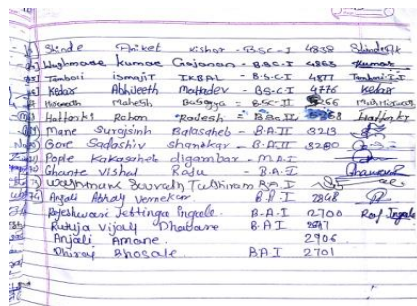 Shinde Aniket Kishor - BSC-I 4838 Shinde AK
Waghmare Kumar Gajanan - BSC-I 4863 Kumar
Tamboli Ismajit IKBAL - B.S.C-I 4877 Tamboli I.I
Kedar Abhijeeth Mahadev - BSC-I 4776 Kedar
Mahesh Basayya - BSC-II 5266
Rohan Rajesh - BSc III
Mane Surajsinh Balasaheb - B.A.III 3213
Gore Sadashiv shankar - B.A.III 3280
Pople Kakasaheb digambar - M.A.I
Ghante Vishal Raju - B.A.I
Waghmare Sourabh Tulshiram B.A.I
Anjali Abhay Vernekar B.A.I 2848
Rajeshwari Jettinga Ingale. B.A.I 2700 Raj Ingale
Rutuja Vijay Dhavare B.A.I 2697
Anjali Amane. 2906
Dhiraj Bhosale. BAI 2701